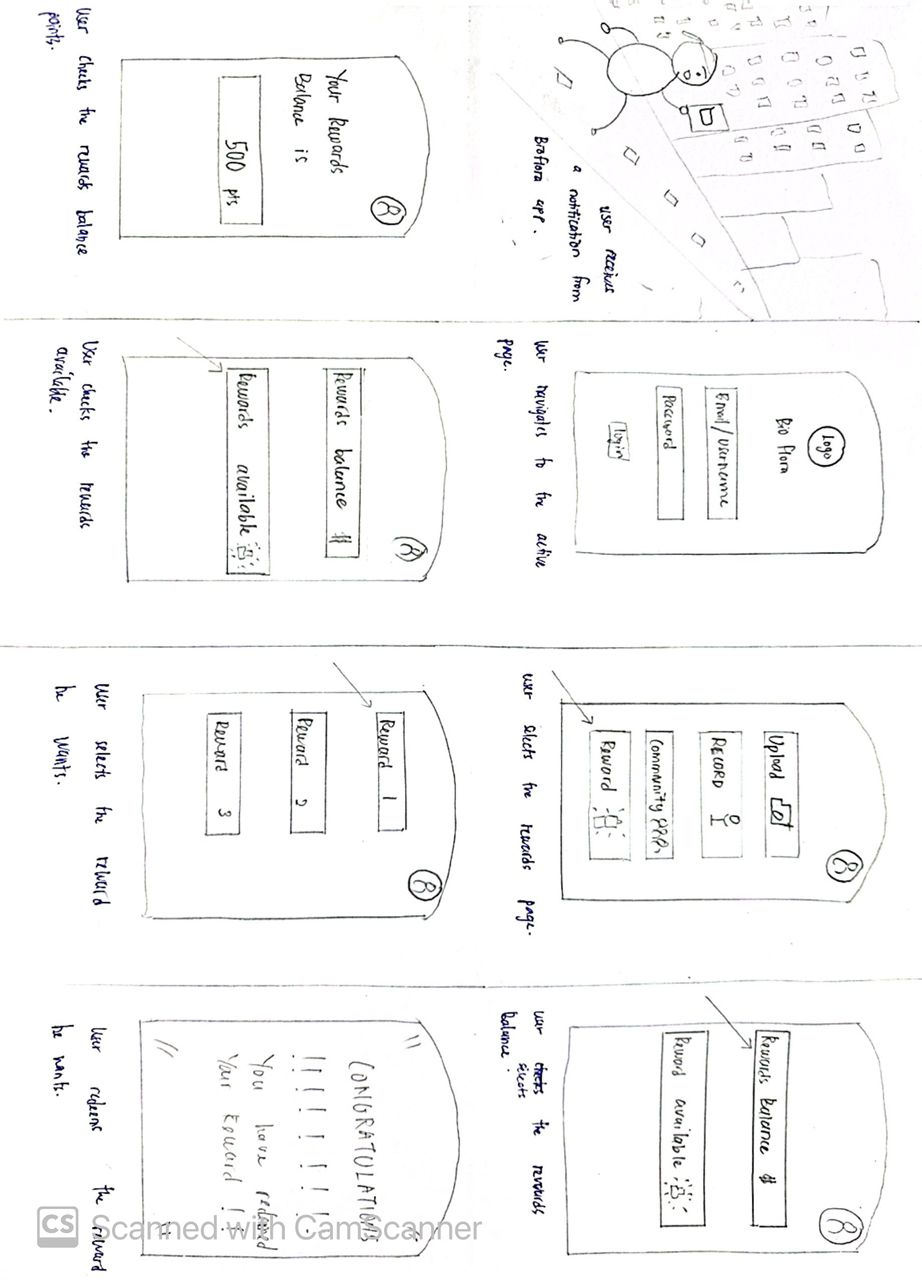 user receives
a notification from
Bioflora app.
Logo
Bio Flora
Email/username
Password
login
user navigates to the active
page.
Upload
RECORD
Community
Reward
user selects the rewards page.
Rewards balance $
Reward available
user selects the rewards
balance
Your Rewards
Balance is
500 pts
User checks the rewards balance
points.
Rewards balance $
Rewards available
User checks the rewards
available.
Reward 1
Reward 2
Reward 3
User selects the reward
he wants.
CONGRATULATIONS
!!!!!!!
You have redeemed
Your Reward !!
User redeems the reward
he wants.
CS Scanned with CamScanner